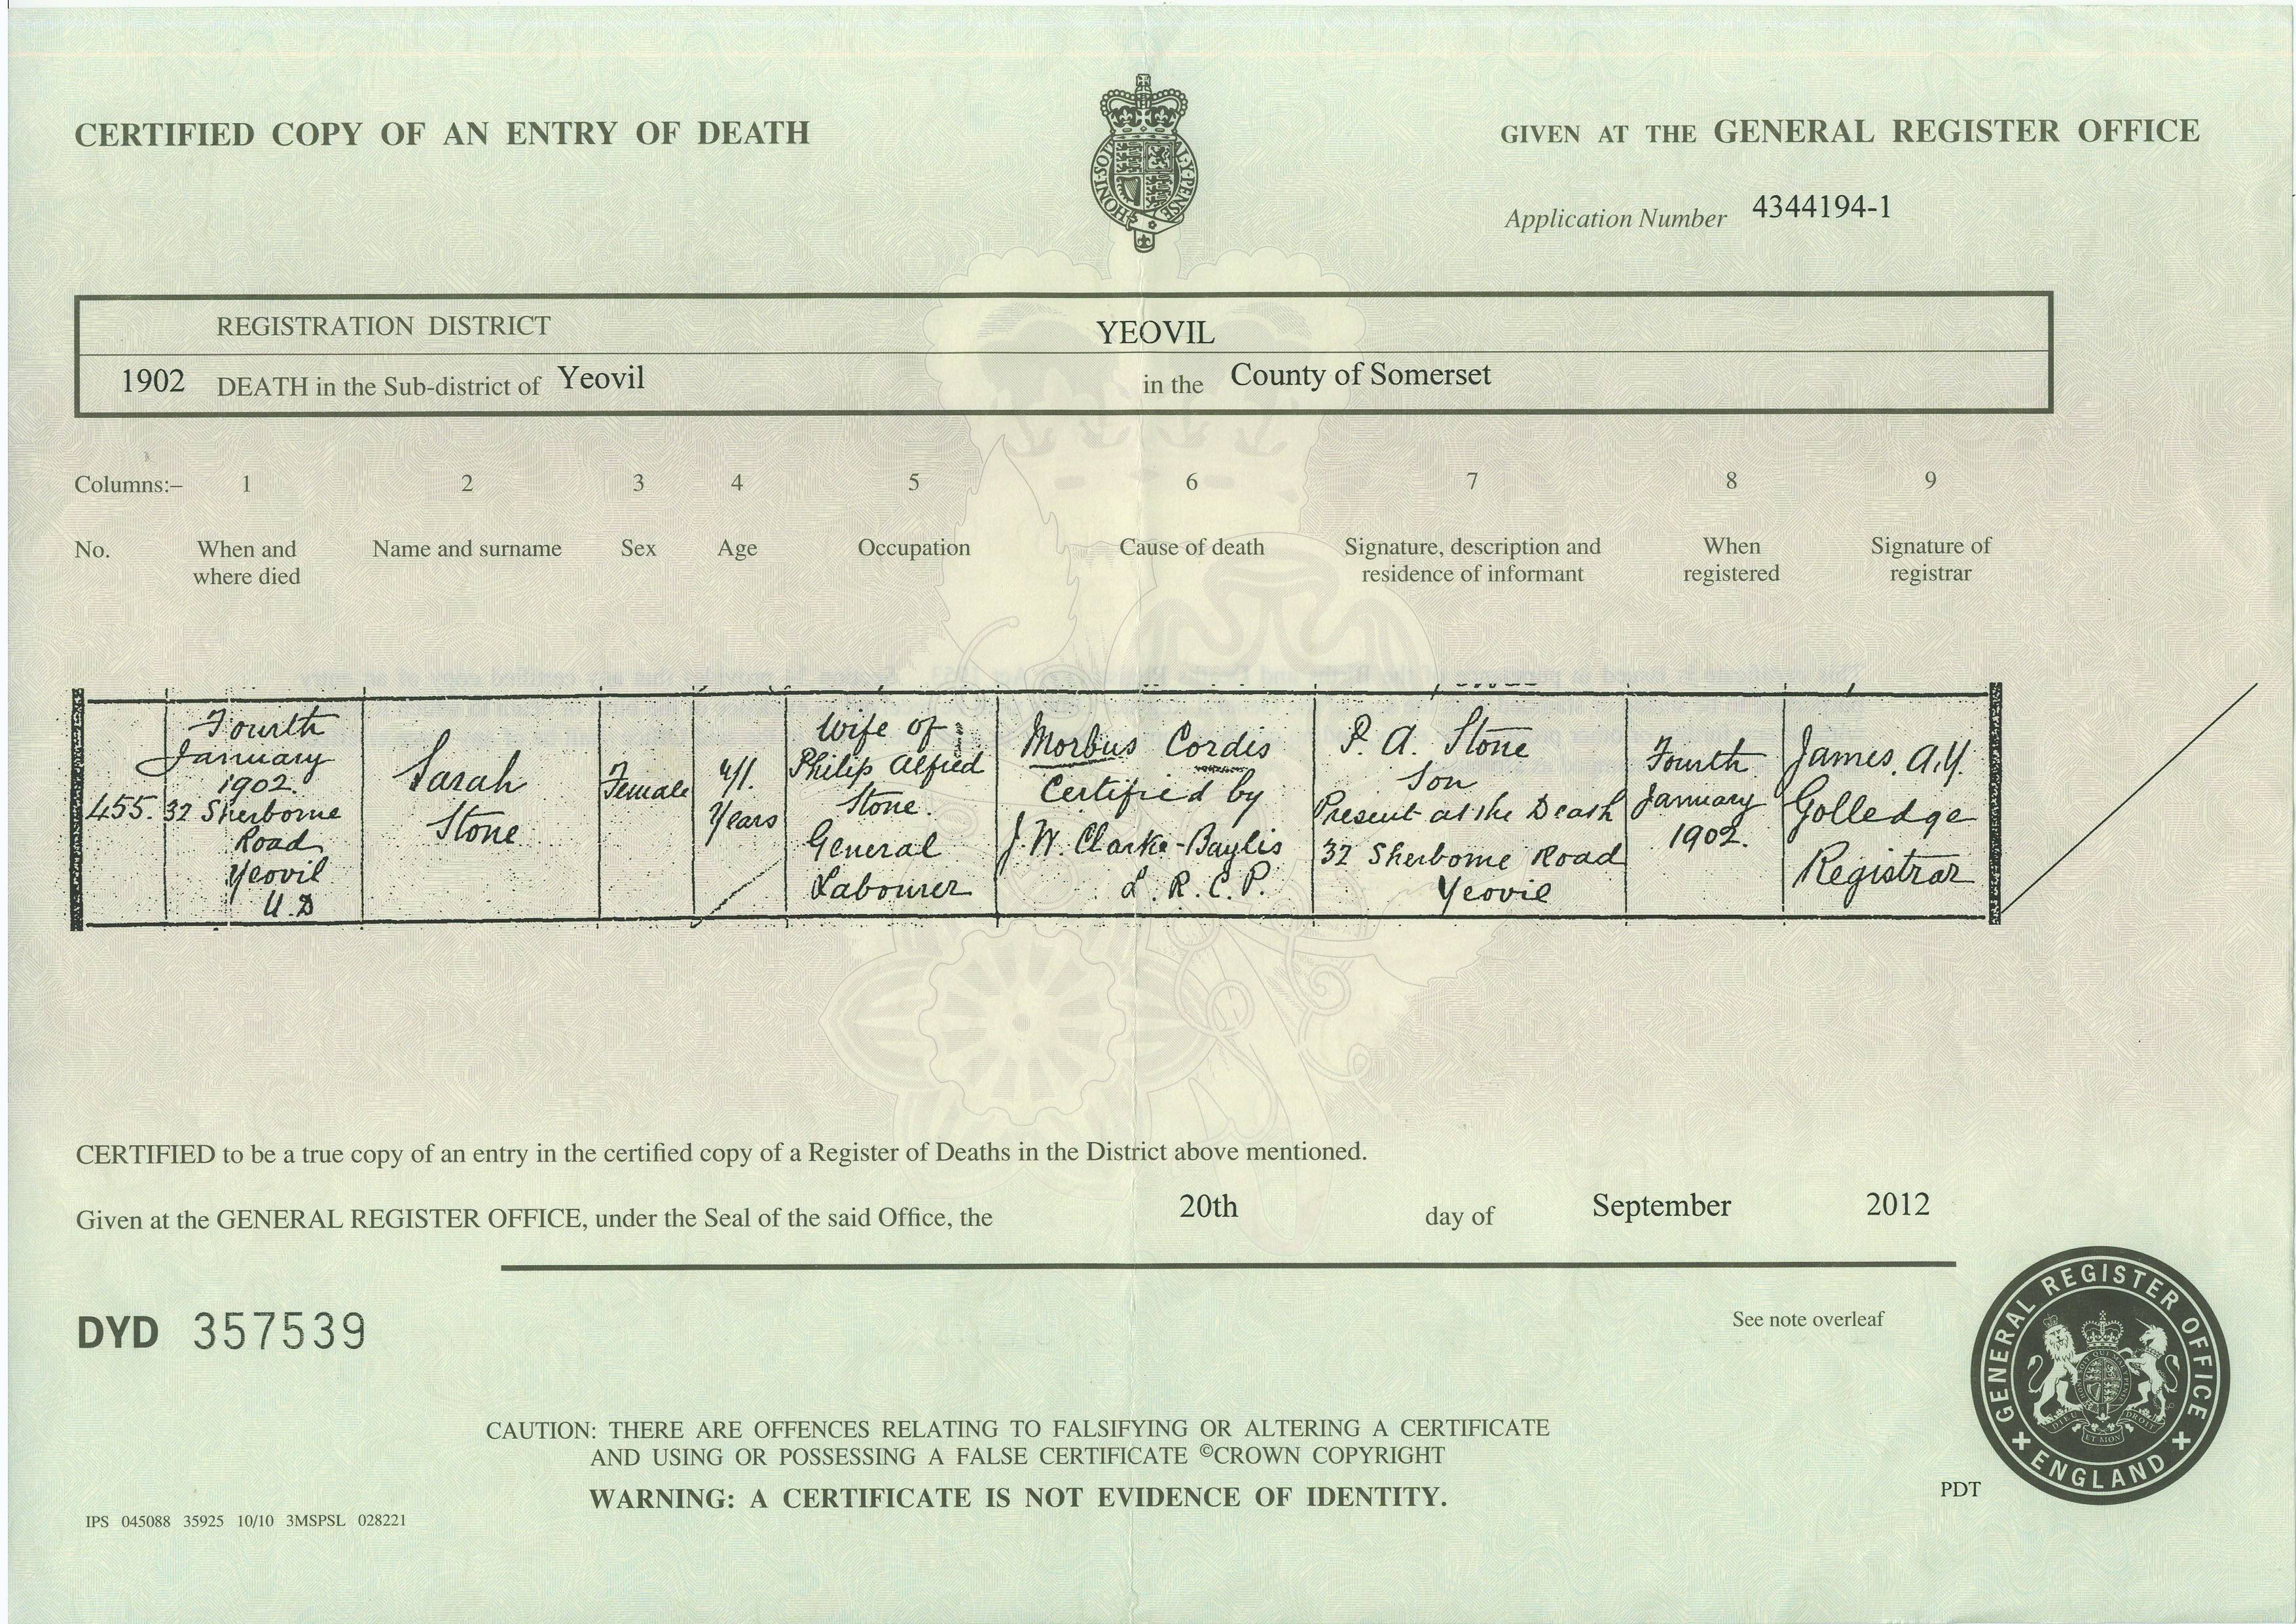 CERTIFIED COPY OF AN ENTRY OF DEATH
GIVEN AT THE GENERAL REGISTER OFFICE
HONI·SOI
AL·Y·PENSE
Application Number 4344194-1
REGISTRATION DISTRICT YEOVIL
1902 DEATH in the Sub-district of Yeovil in the County of Somerset
Columns:– 1 2 3 4 5 6 7 8 9
No.
When and
where died
Name and surname
Sex
Age
Occupation
Cause of death
Signature, description and
residence of informant
When
registered
Signature of
registrar
455.
Fourth
January
1902.
32 Sherborne
Road
Yeovil
U.D
Sarah
Stone
Female
41.
Years
Wife of
Philip Alfred
Stone.
General
Labourer
Morbus Cordis
Certified by
J. W. Clarke-Baylis
L.R.C.P.
P. A. Stone
Son
Present at the Death
32 Sherborne Road
Yeovil
Fourth
January
1902.
James. A.Y.
Golledge
Registrar
CERTIFIED to be a true copy of an entry in the certified copy of a Register of Deaths in the District above mentioned.
Given at the GENERAL REGISTER OFFICE, under the Seal of the said Office, the 20th day of September 2012
DYD 357539
See note overleaf
GENERAL REGISTER OFFICE
ENGLAND
DIEU ET MON DROIT
CAUTION: THERE ARE OFFENCES RELATING TO FALSIFYING OR ALTERING A CERTIFICATE
AND USING OR POSSESSING A FALSE CERTIFICATE ©CROWN COPYRIGHT
WARNING: A CERTIFICATE IS NOT EVIDENCE OF IDENTITY.
PDT
IPS 045088 35925 10/10 3MSPSL 028221